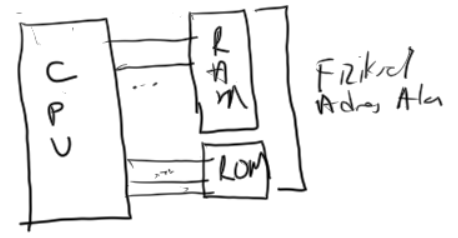 CPU
RAM
ROM
Fiziksel
Adres Alan